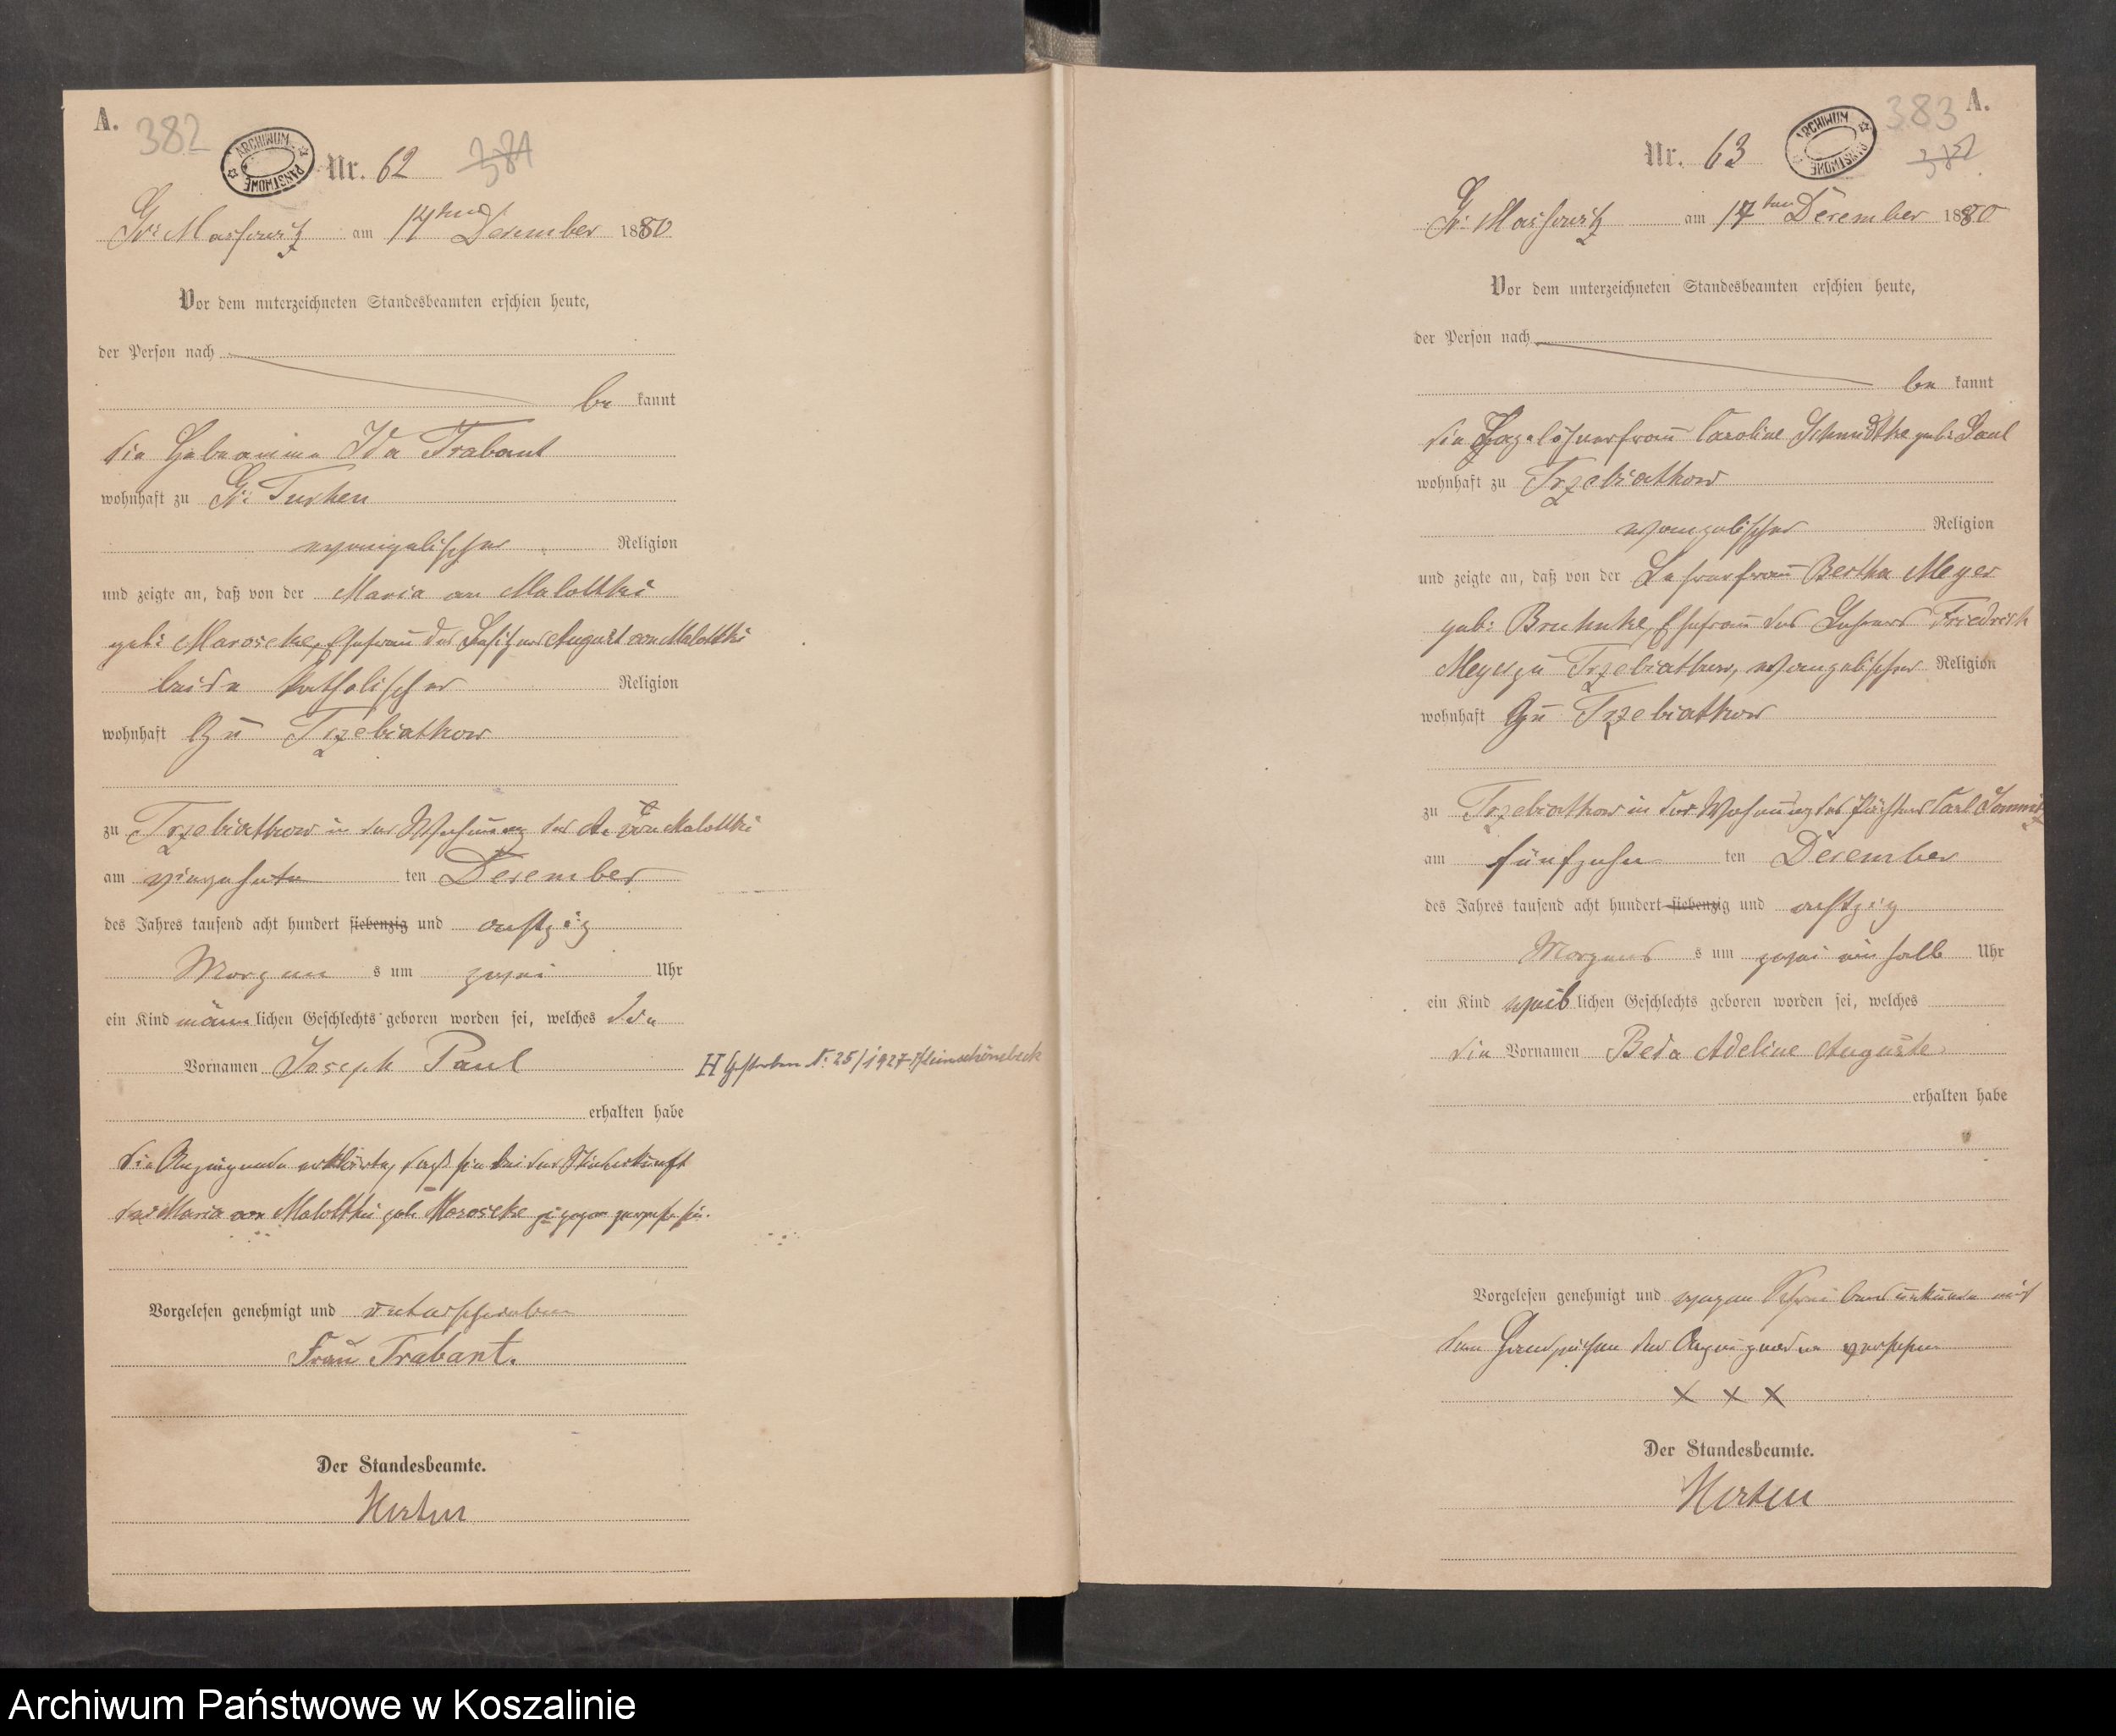 A.
382
ARCHIWUM PAŃSTWOWE
Nr. 62
381
Gr: Massowitz am 17ten December 1880
Vor dem unterzeichneten Standesbeamten erschien heute,
der Person nach
be kannt
die Hebamme Ida Trabant
wohnhaft zu Gr: Tuchen
evangelischer Religion
und zeigte an, daß von der Maria von Malottki
geb: Maroscke, Ehefrau des Besitzers August von Malottki
beide katholischer Religion
wohnhaft zu Trzebiatkow
zu Trzebiatkow in der Wohnung des A. von Malottki
am vierzehnten ten December
des Jahres tausend acht hundert siebenzig und achtzig
Morgen s um zwei Uhr
ein Kind männ lichen Geschlechts geboren worden sei, welches die
Vornamen Joseph Paul
H Gestorben Nr. 25/1927 Kleinschönebeck
erhalten habe
die Anzeigende erklärte, daß sie bei der Niederkunft
der Maria von Malottki geb. Maroscke zugegen gewesen sei.
Vorgelesen genehmigt und unterschrieben
Frau Trabant.
Der Standesbeamte.
A.
383
ARCHIWUM PAŃSTWOWE
Nr. 63
382
Gr: Massowitz am 17ten December 1880
Vor dem unterzeichneten Standesbeamten erschien heute,
der Person nach
be kannt
die Tagelöhnerfrau Caroline Schmidtke geb: Paul
wohnhaft zu Trzebiatkow
evangelischer Religion
und zeigte an, daß von der Lehrerfrau Bertha Meyer
geb: Bruhnke, Ehefrau des Lehrers Friedrich
Meyer zu Trzebiatkow, evangelischer Religion
wohnhaft zu Trzebiatkow
zu Trzebiatkow in der Wohnung des Carl
am fünfzehn ten December
des Jahres tausend acht hundert siebenzig und achtzig
Morgens s um zwei ein halb Uhr
ein Kind weib lichen Geschlechts geboren worden sei, welches
die Vornamen Beda Adeline Auguste
erhalten habe
Vorgelesen genehmigt und wegen Schreibensunkunde mit
dem Handzeichen der Anzeigenden versehen
X X X
Der Standesbeamte.
Archiwum Państwowe w Koszalinie